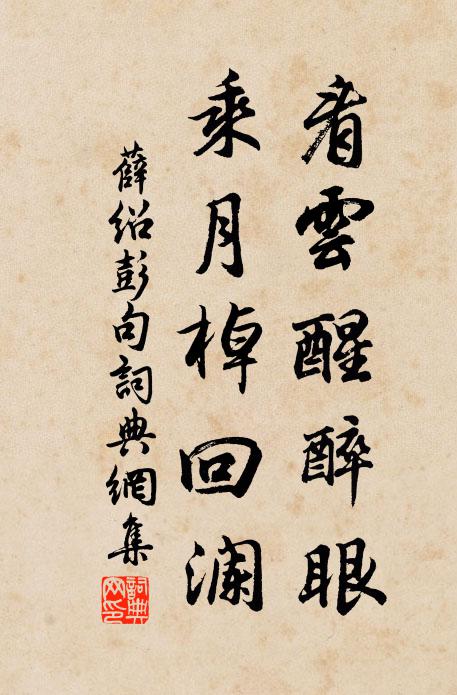 看雲醒醉眼
乘月棹回澜
薛紹彭句詞典網集
詞典網印